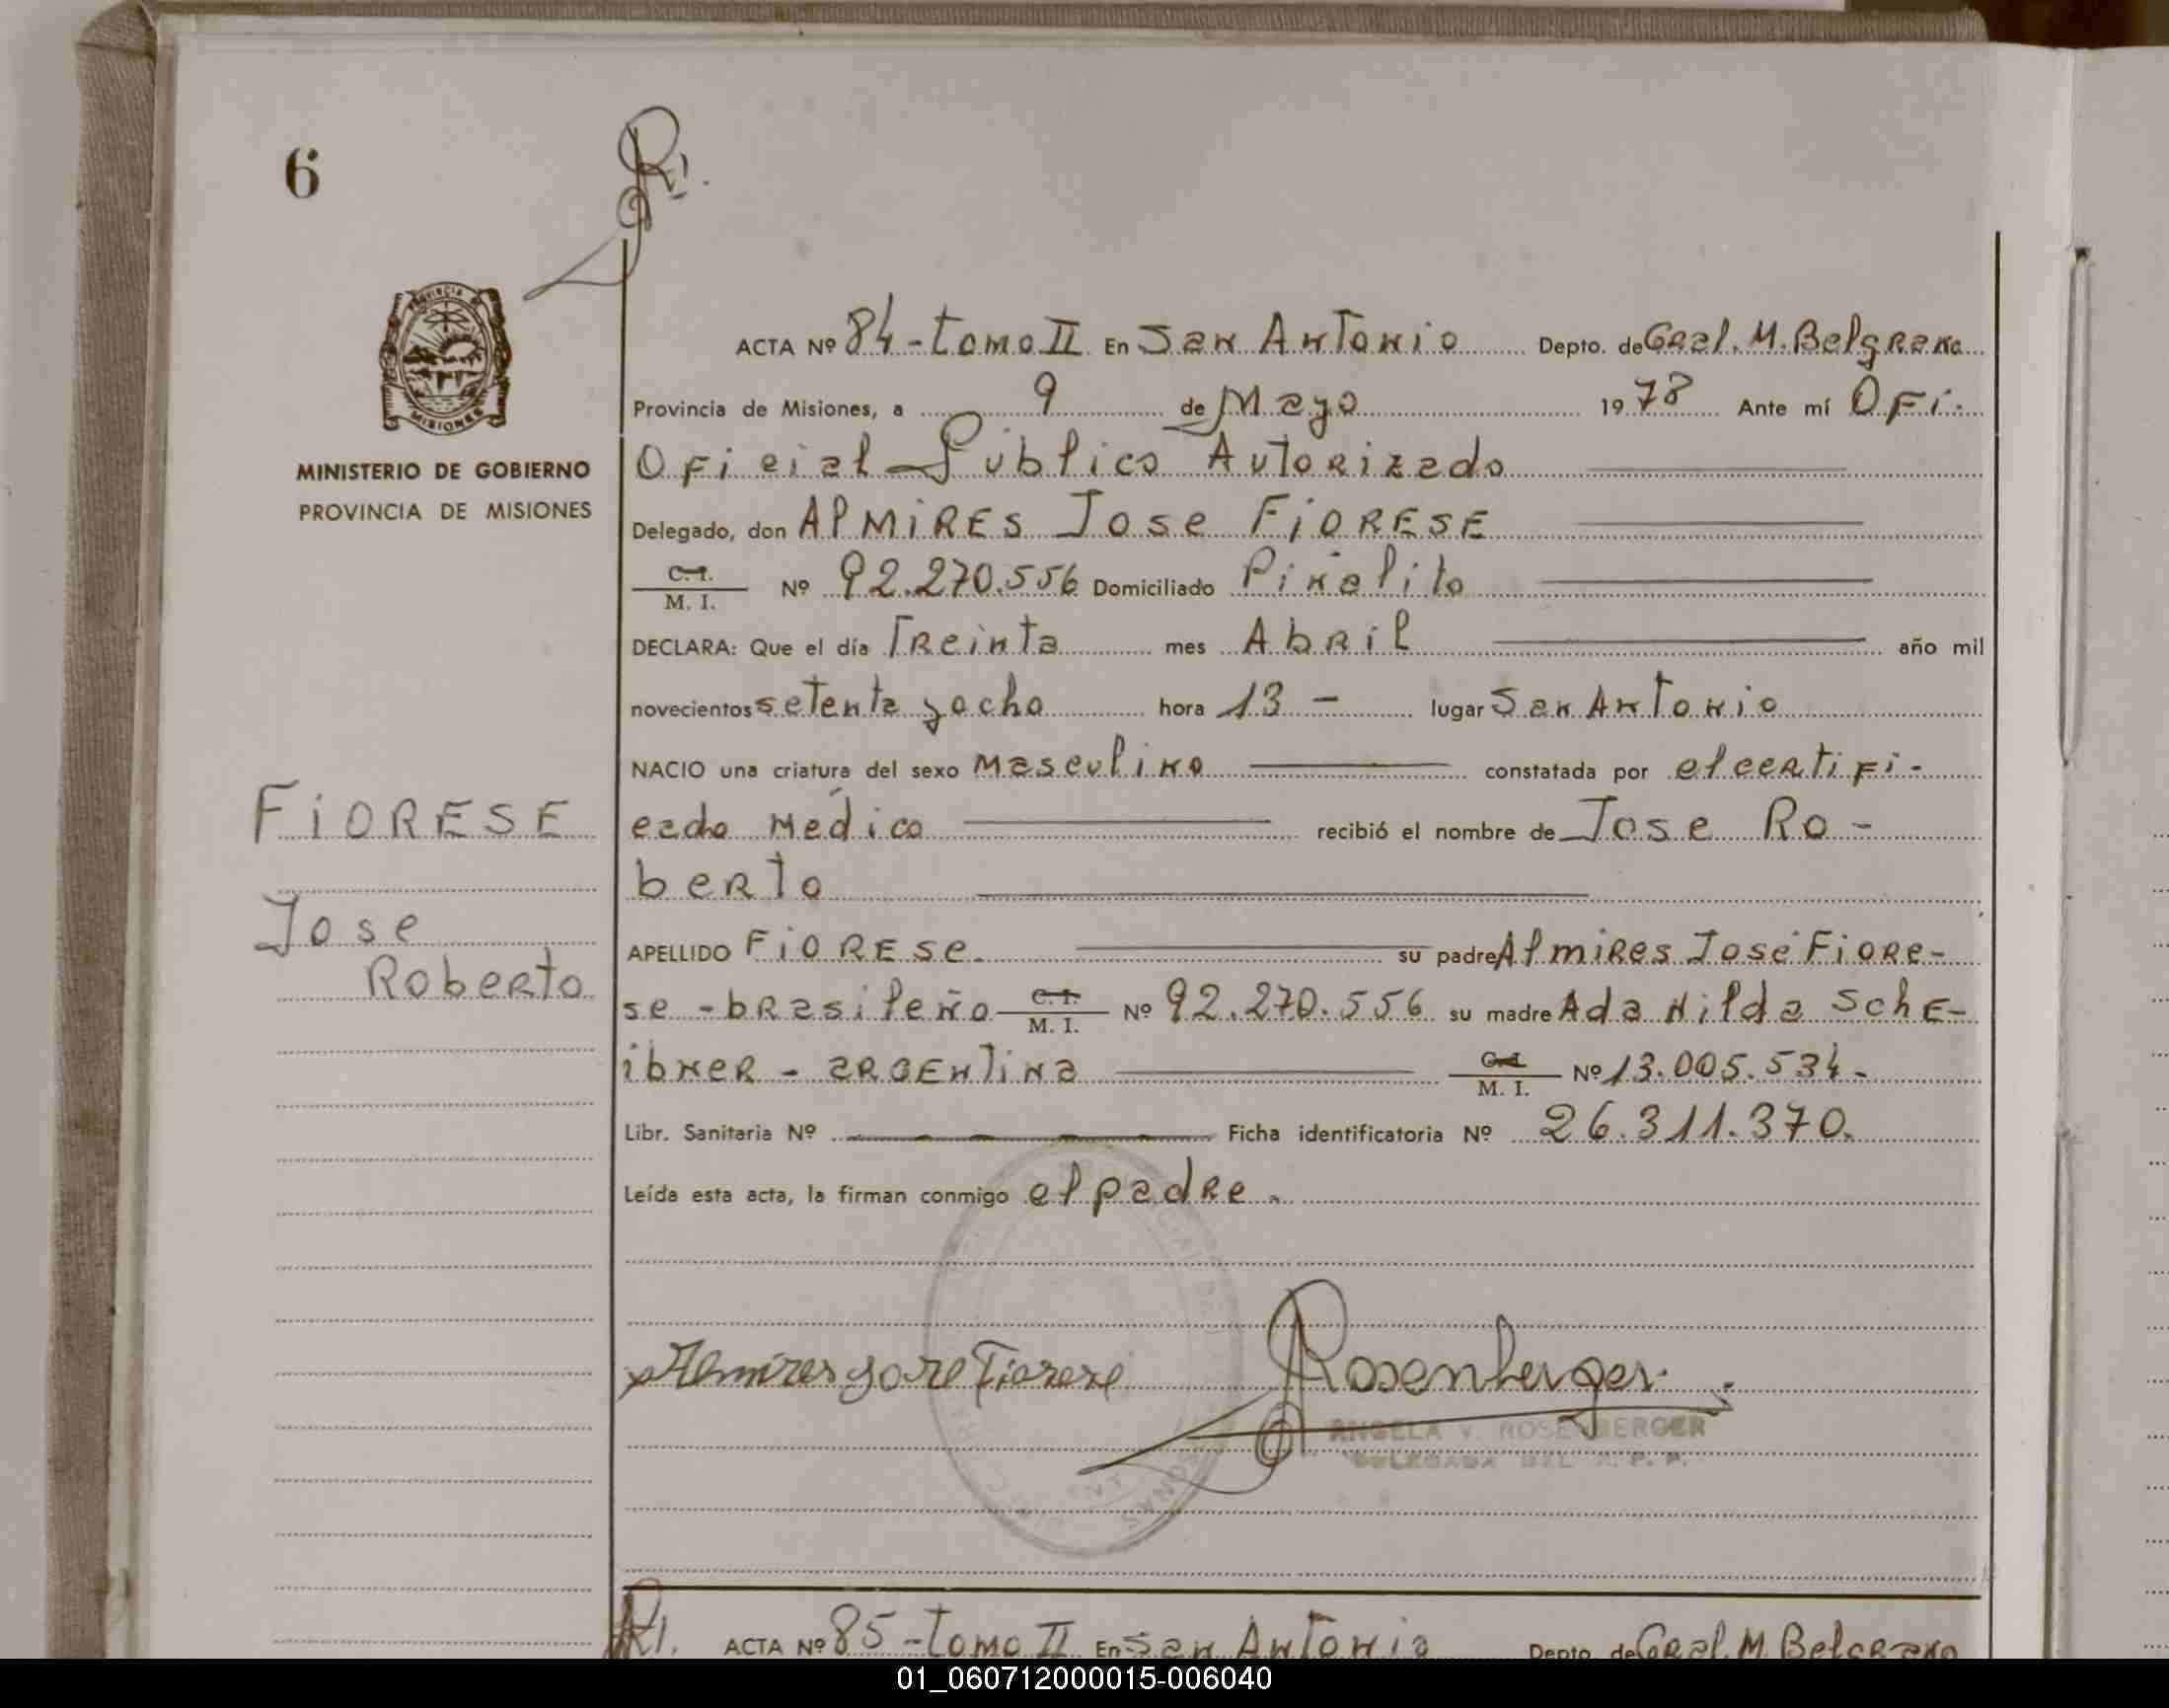 6
PROVINCIA DE
MISIONES
MINISTERIO DE GOBIERNO
PROVINCIA DE MISIONES
ACTA Nº 84-tomo II En San Antonio Depto. de Gral. M. Belgrano
Provincia de Misiones, a 9 de Mayo 1978 Ante mí Ofi.
Oficial Público Autorizado
Delegado, don AlMiRES Jose FiORESE
C.I. M. I. Nº 92.270.556 Domiciliado Piñalito
DECLARA: Que el día Treinta mes Abril año mil
novecientos setenta y ocho hora 13 - lugar San Antonio
NACIO una criatura del sexo Masculino constatada por el certifi-
cado Médico recibió el nombre de Jose Ro-
berto
APELLIDO FiORESe. su padre Almires José Fiore-
se - brasileño C.I. M. I. Nº 92.270.556 su madre Ada Nilda SchE-
ibner - argentina C.I. M. I. Nº 13.005.534-
Libr. Sanitaria Nº Ficha identificatoria Nº 26.311.370.
Leída esta acta, la firman conmigo el padre.
FiORESE
Jose
Roberto
Almires Jose Fiorese
Rosenberger
ANGELA V. ROSENBERGER
DELEGADA DEL R. P. P.
ACTA Nº 85-tomo II En San Antonio Depto. de Gral. M. Belgrano
01_060712000015-006040